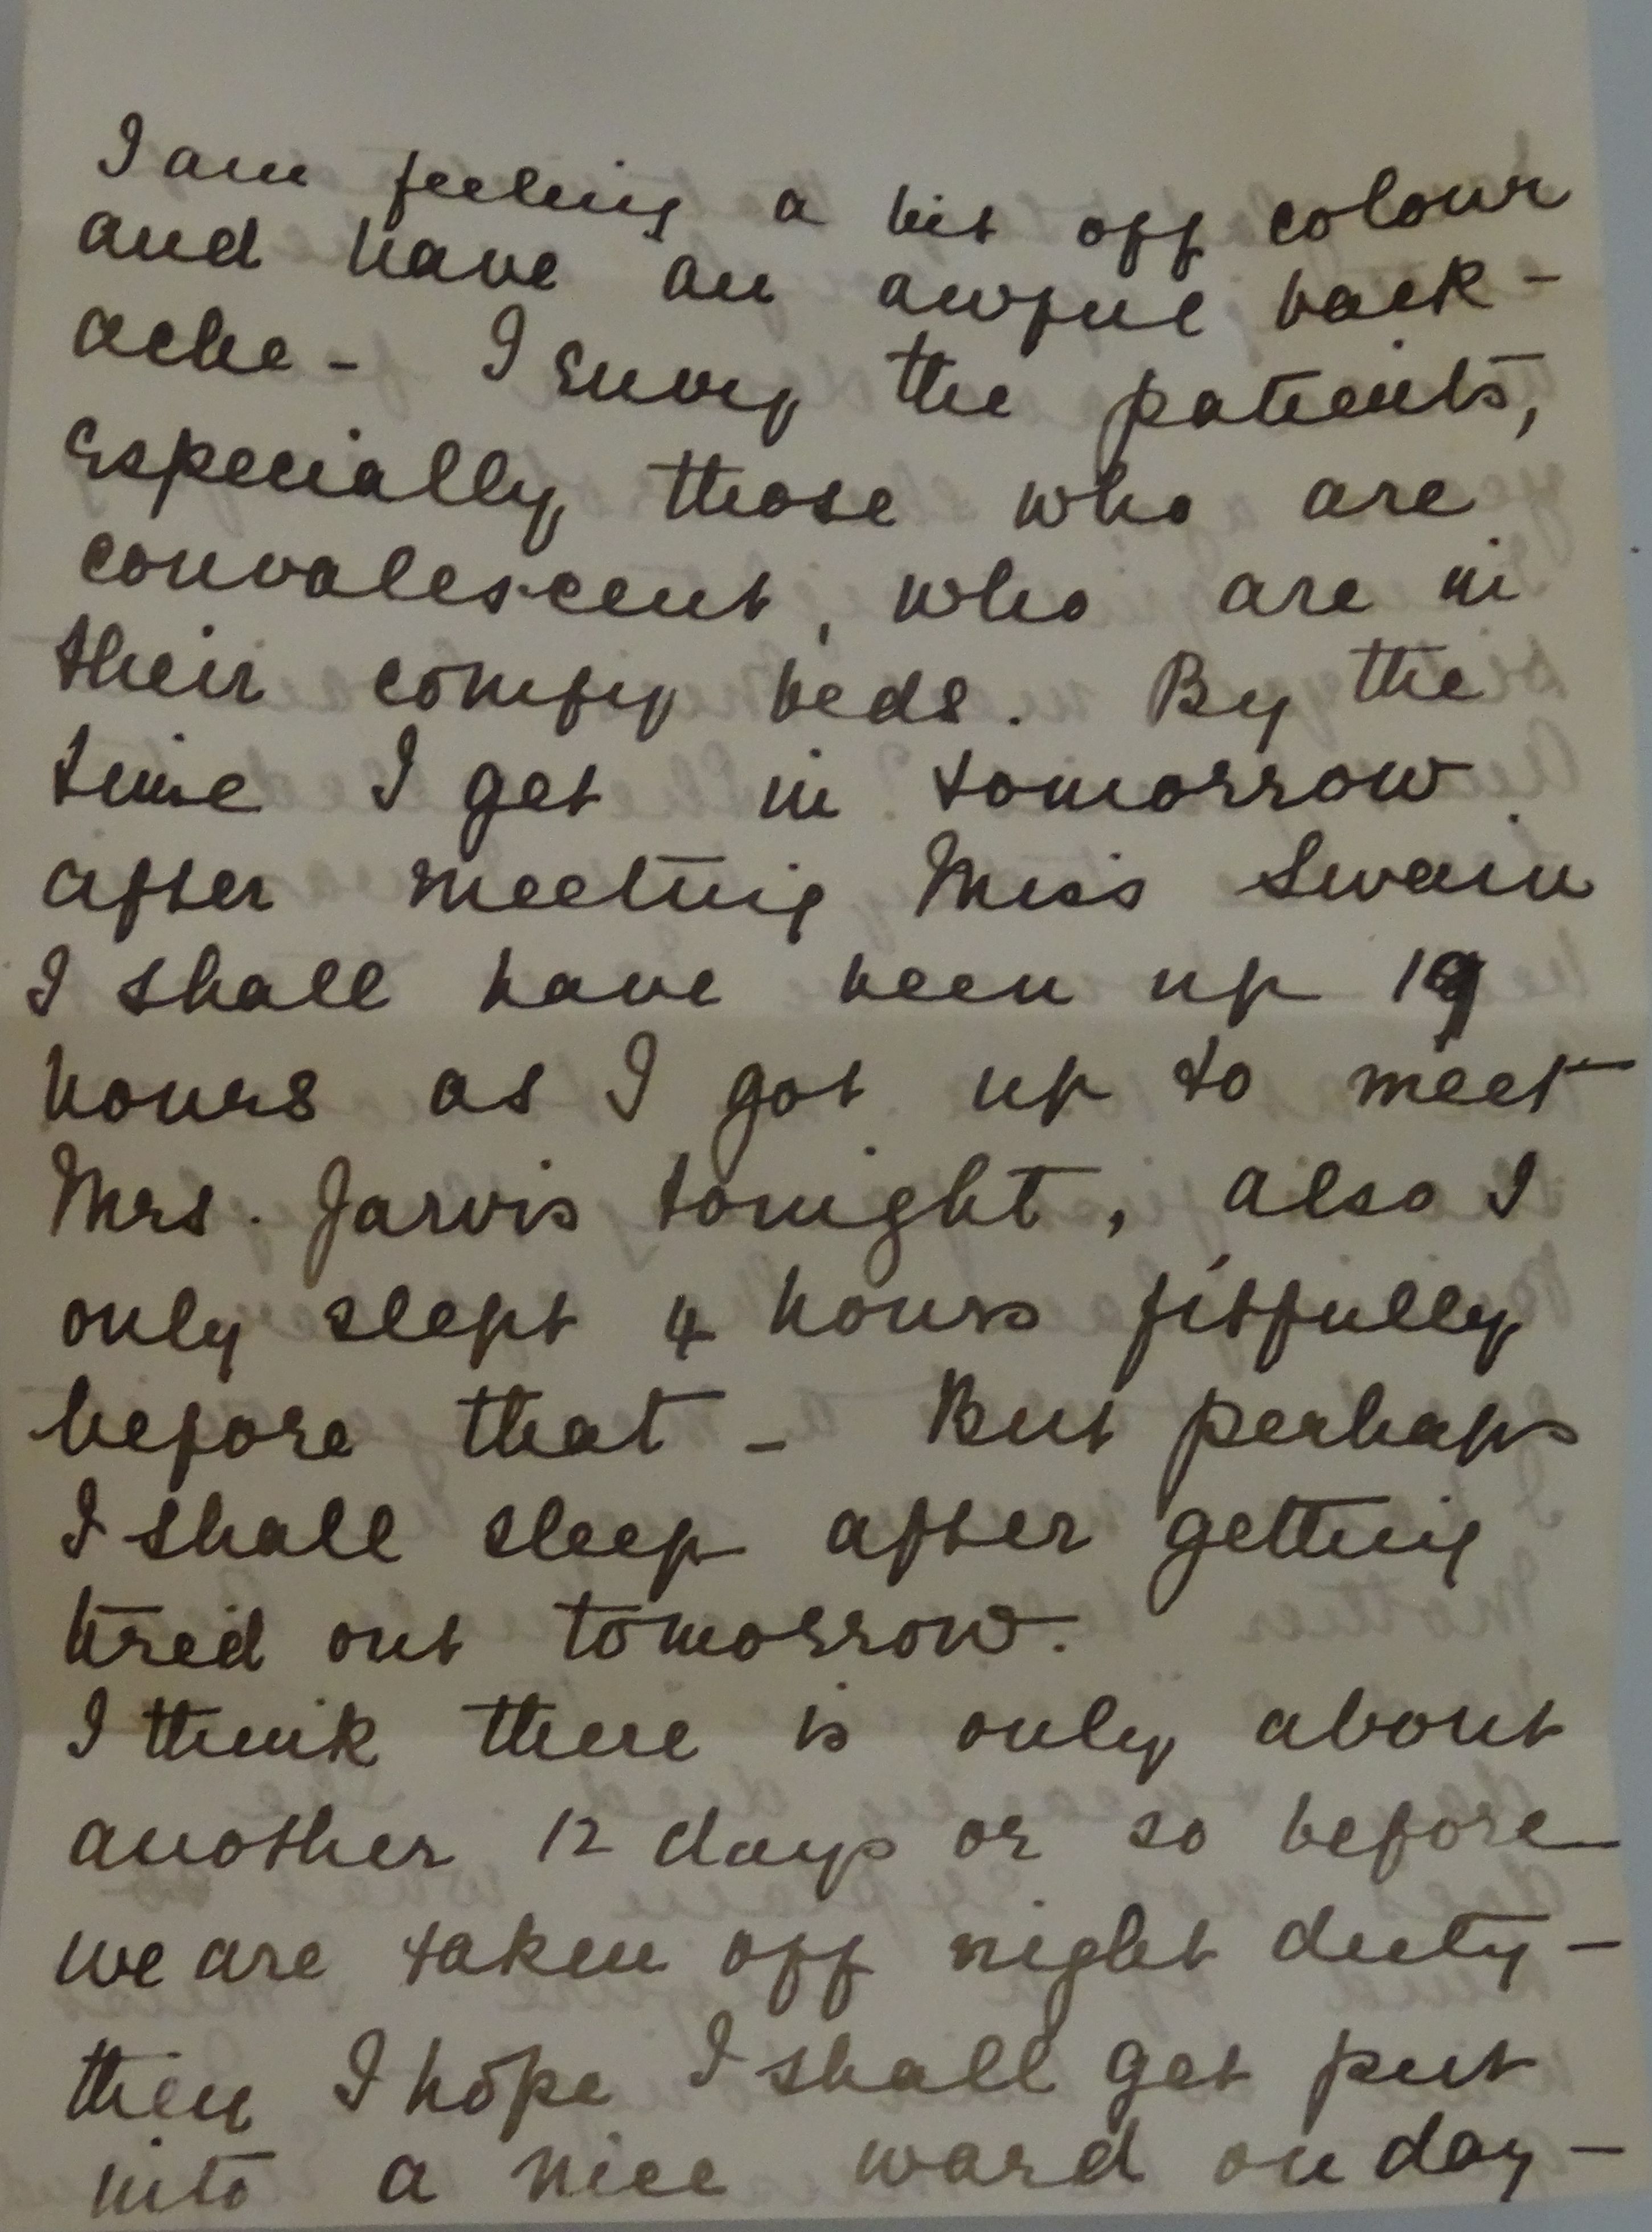 I am feeling a bit off colour
and have an awful back-
ache - I envy the patients,
especially those who are
convalescent, who are in
their comfy beds. By the
time I get in tomorrow
after meeting Miss Swain
I shall have been up 19
hours as I got up to meet
Mrs. Jarvis tonight, also I
only slept 4 hours fitfully
before that - But perhaps
I shall sleep after getting
tired out tomorrow.
I think there is only about
another 12 days or so before
we are taken off night duty -
then I hope I shall get put
into a nice ward on day -